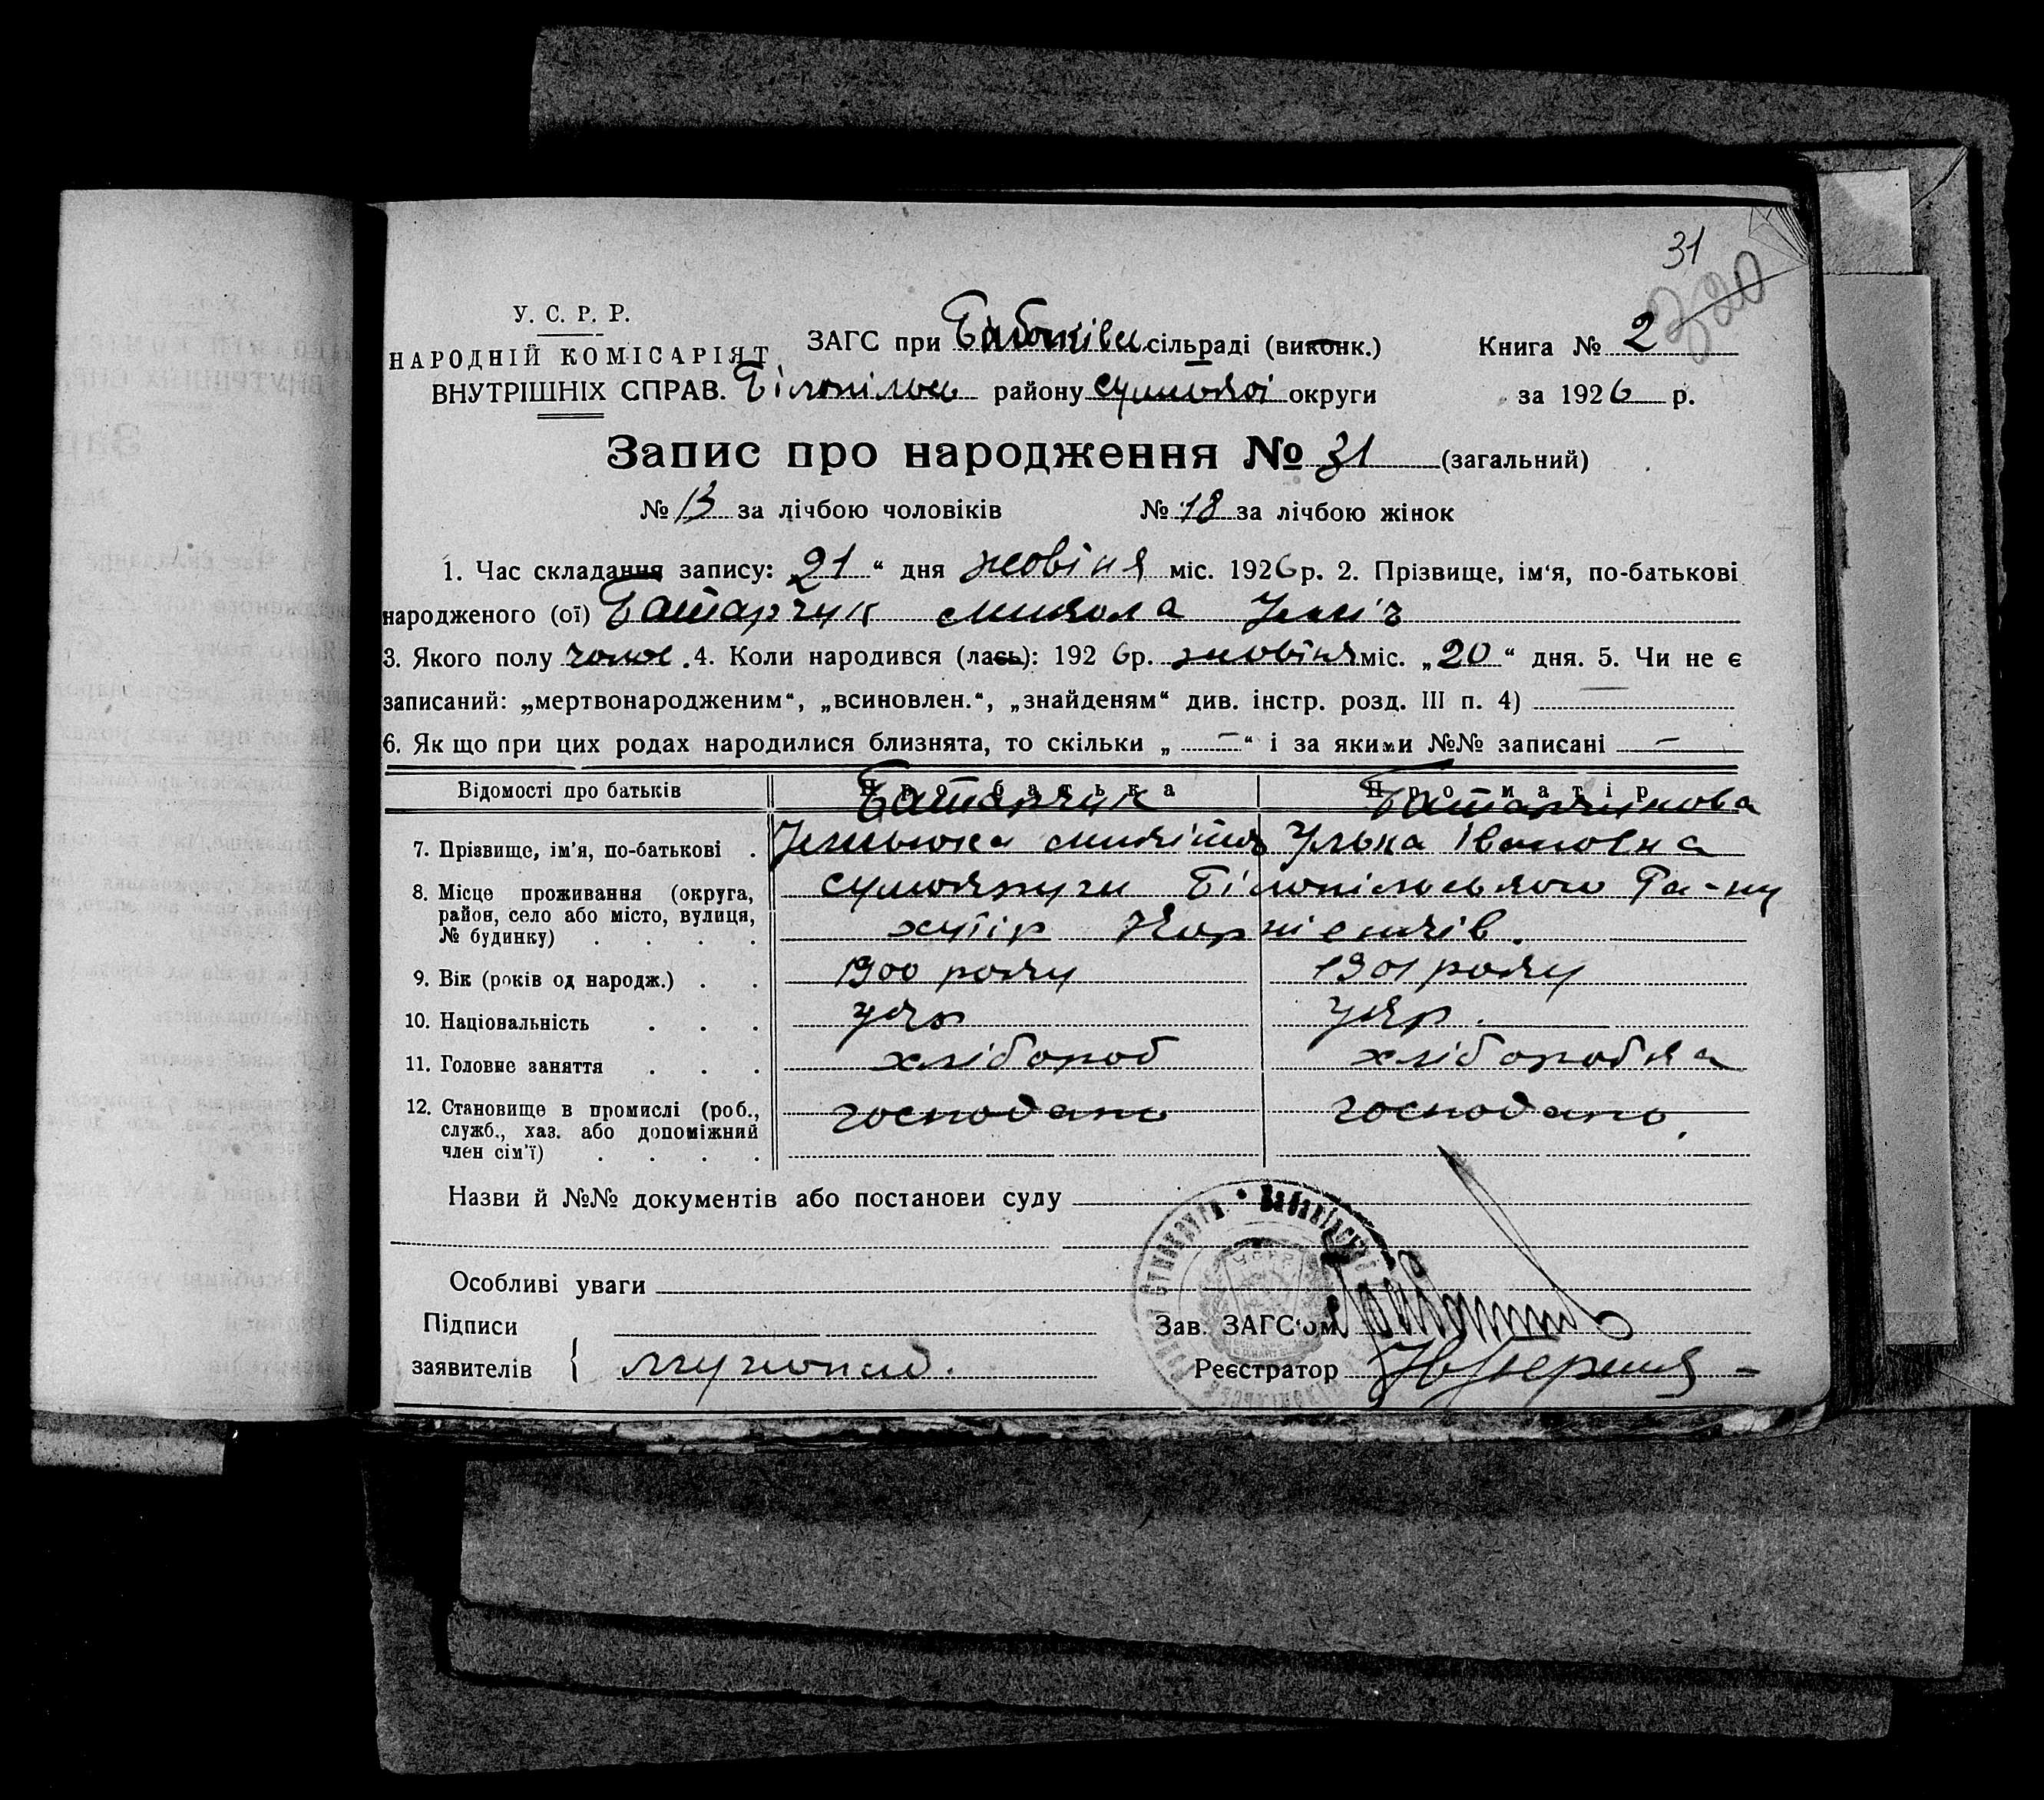 31
320
У. С. Р. Р.
НАРОДНІЙ КОМІСАРІЯТ
ВНУТРІШНІХ СПРАВ.
ЗАГС при сільраді (виконк.)
Білопільск району сумської округи
Книга № 2
за 1926 р.
Запис про народження № 31 (загальний)
№ 13 за лічбою чоловіків № 18 за лічбою жінок
1. Час складання запису: „21“ дня жовтня міс. 1926 р. 2. Прізвище, ім‘я, по-батькові
народженого (ої) Батарчук микола
3. Якого полу чолов. 4. Коли народився (лась): 1926 р. жовтня міс. „20“ дня. 5. Чи не є
записаний: „мертвонародженим“, „всиновлен.“, „знайденям“ див. інстр. розд. III п. 4) —
6. Як що при цих родах народилися близнята, то скільки „ — “ і за якими №№ записані —
Відомості про батьків Про батька Про матір
Батарчук Батарчукова
7. Прізвище, ім‘я, по-батькові . Улька Івановна
8. Місце проживання (округа,
район, село або місто, вулиця,
№ будинку) . . . .
сумокруги Білопільського Ра-ну
хутір Корнієнків.
9. Вік (років од народж.) . . 1900 року 1901 року
10. Національність . . . укр укр.
11. Головне заняття . . . хлібороб хліборобка
12. Становище в промислі (роб.,
служб., хаз. або допоміжний
член сім‘ї) . . . .
господарь господарь.
Назви й №№ документів або постанови суду
Особливі уваги
Підписи
заявителів {
Зав. ЗАГС‘ом
Реєстратор